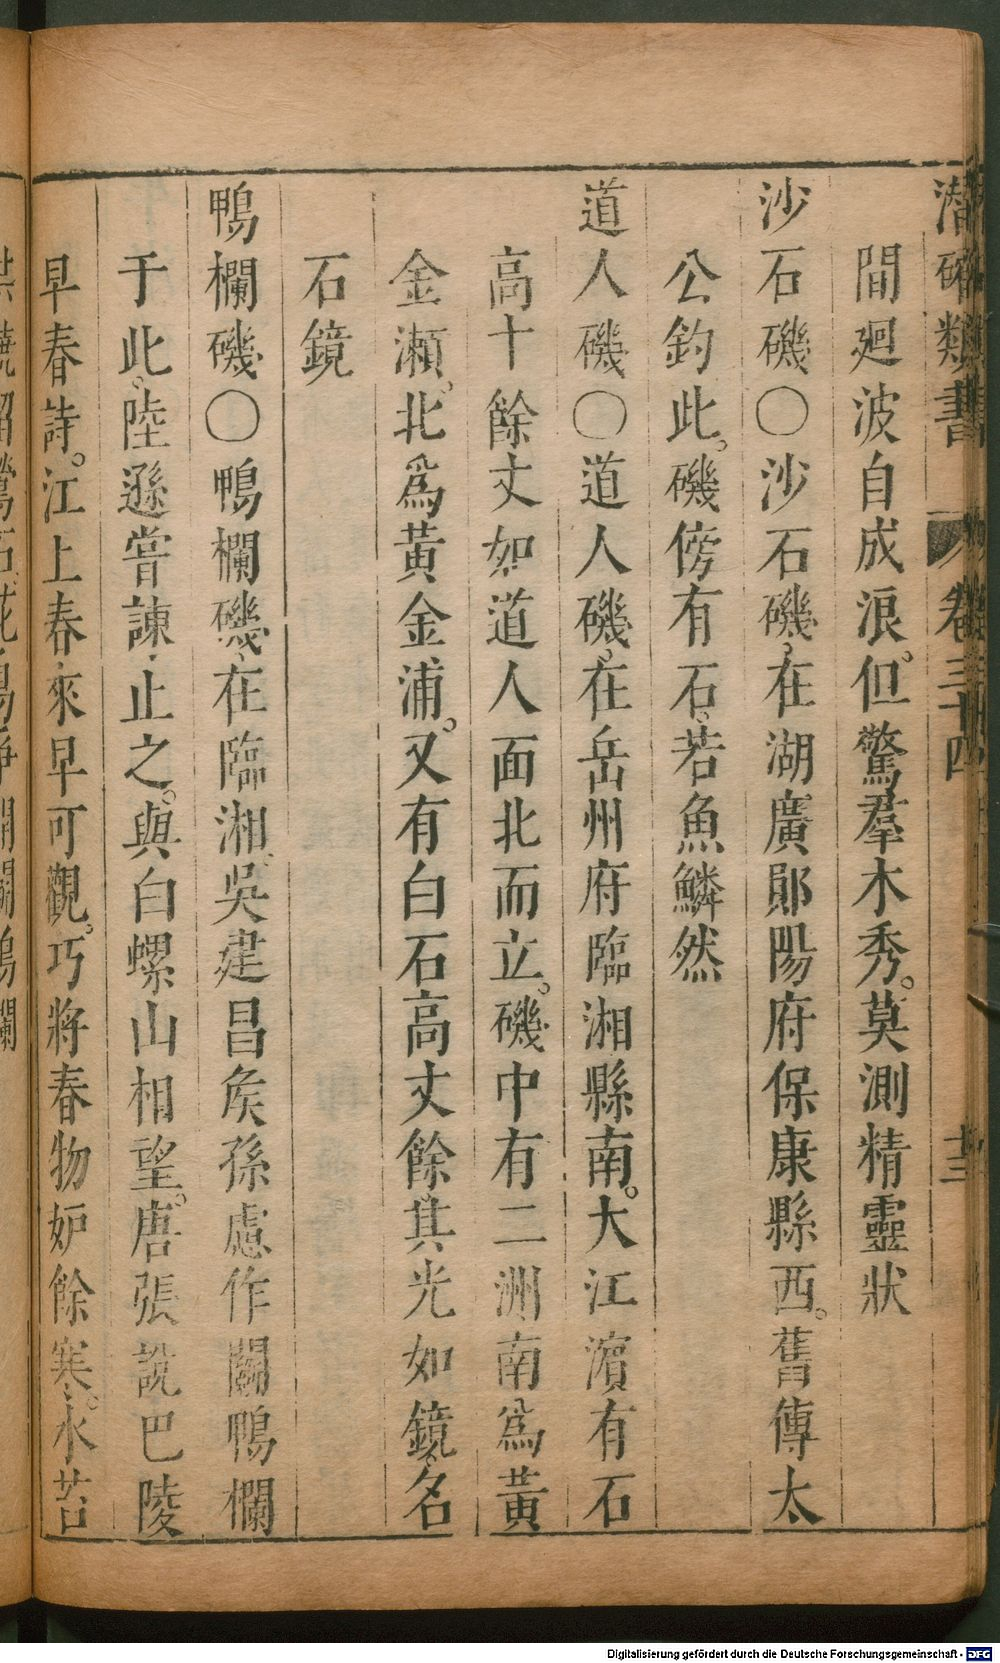 潛確類書 卷三十四 十三
間廻波自成浪。但驚羣木秀。莫測精靈狀
沙石磯○沙石磯。在湖廣鄖陽府保康縣西。舊傳太
公釣此。磯傍有石。若魚鱗然
道人磯○道人磯。在岳州府臨湘縣南。大江濵有石
高十餘丈如道人面北而立。磯中有二洲南爲黃
金瀬。北爲黃金浦。又有白石高丈餘其光如鏡。名
石鏡
鴨欄磯○鴨欄磯。在臨湘。吳建昌矦孫慮作鬬鴨欄
于此。陸遜嘗諫止之。與白螺山相望。唐張說巴陵
早春詩。江上春來早可觀。巧將春物妒餘寒。水苔
Digitalisierung gefördert durch die Deutsche Forschungsgemeinschaft - DFG